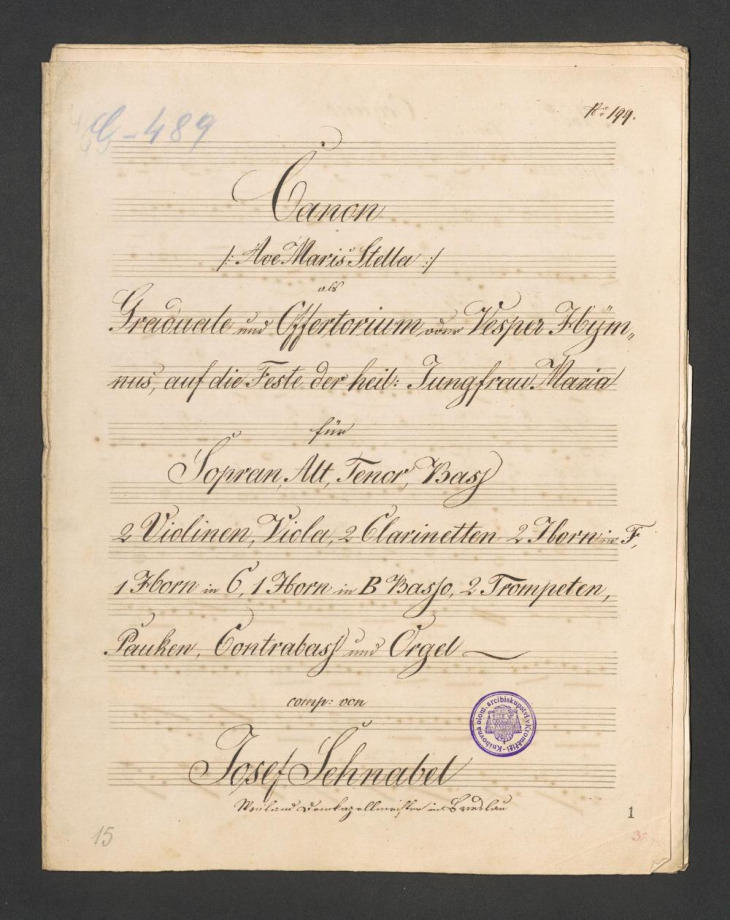 No 199.
C-489
Canon
/: Ave Maris Stella :/
als
Graduale und Offertorium, oder Vesper Hÿm„
nus, auf die Feste der heil: Jungfrau Maria
für
Sopran, Alt, Tenor, Bass
2 Violinen, Viola, 2 Clarinetten 2 Horn in F,
1 Horn in C, 1 Horn in B Basso, 2 Trompeten,
Pauken, Contrabass und Orgel
comp: von
Josef Schnabel
Weiland Domkapellmeister in Breslau
Knihovna olom. arcibiskupství v Kroměříži
1
15